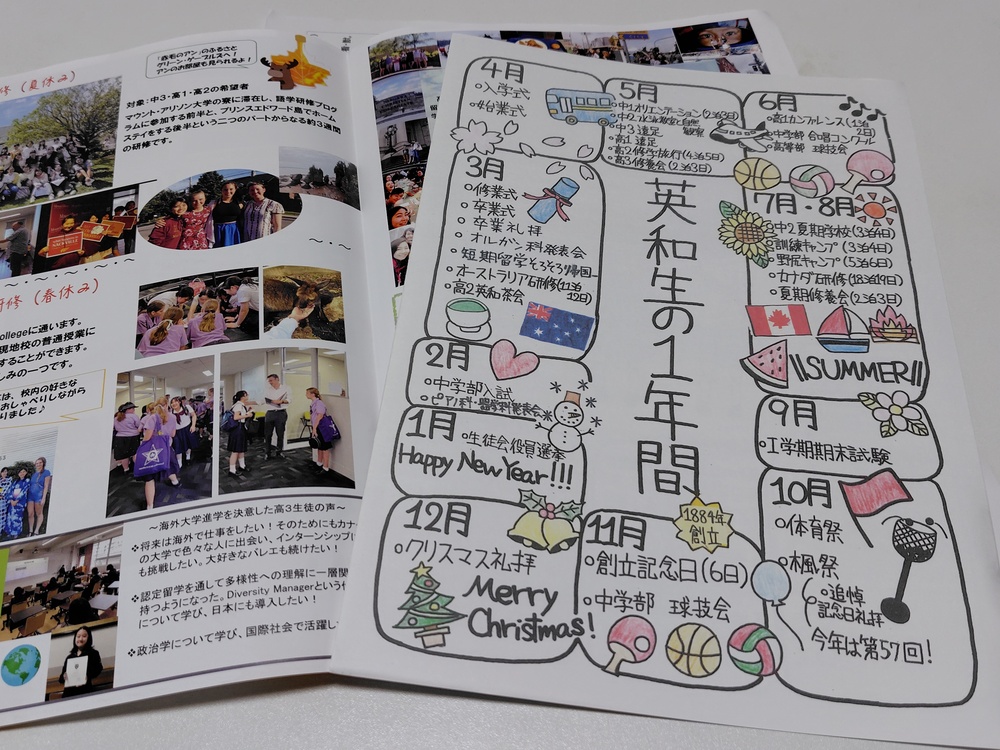 修(夏休み)
「赤毛のアン」のふるさと
グリーン・ゲーブルズへ!
アンのお部屋も見られるよ!
対象:中3・高1・高2の希望者
マウント・アリソン大学の寮に滞在し、語学研修プログ
ラムに参加する前半と、プリンスエドワード島でホーム
ステイをする後半という二つのパートからなる約3週間
の研修です。
研修(春休み)
ollegeに通います。
現地校の普通授業に
することができます。
しみの一つです。
は、校内の好きな
おしゃべりしながら
りました♪
~海外大学進学を決意した高3生徒の声~
❖将来は海外で仕事をしたい!そのためにもカナ
の大学で色々な人に出会い、インターンシップに
も挑戦したい。大好きなバレエも続けたい!
❖認定留学を通して多様性への理解に一層関
持つようになった。Diversity Managerという
について学び、日本にも導入したい!
❖政治学について学び、国際社会で活躍し
英和生の1年間
1884年
創立
4月
○入学式
○始業式
5月
○中1オリエンテーション(2泊3日)
○中3 遠足
○高1 遠足
○高2修学旅行(4泊5日)
○高3修養会(2泊3日)
6月
○高1カンファレンス(1泊
2日)
○中学部 合唱コンクール
○高等部 球技会
7月・8月
○中2夏期学校(3泊4日)
○訓練キャンプ(3泊4日)
○野尻キャンプ(5泊6日)
○カナダ研修(18泊19日)
○夏期修養会(2泊3日)
SUMMER
9月
○1学期期末試験
10月
○体育祭
○楓祭
○追悼
記念日礼拝
今年は第57回!
11月
○創立記念日(6日)
○中学部 球技会
12月
○クリスマス礼拝
Merry
Christmas!
1月
○生徒会役員選挙
Happy New Year!!!
2月
○中学部入試
○ピアノ科・器学科発表会
3月
○修業式
○卒業式
○卒業礼拝
○オルガン科発表会
○短期留学そろそろ帰国
○オーストラリア研修(11泊
12日)
○高2英和茶会